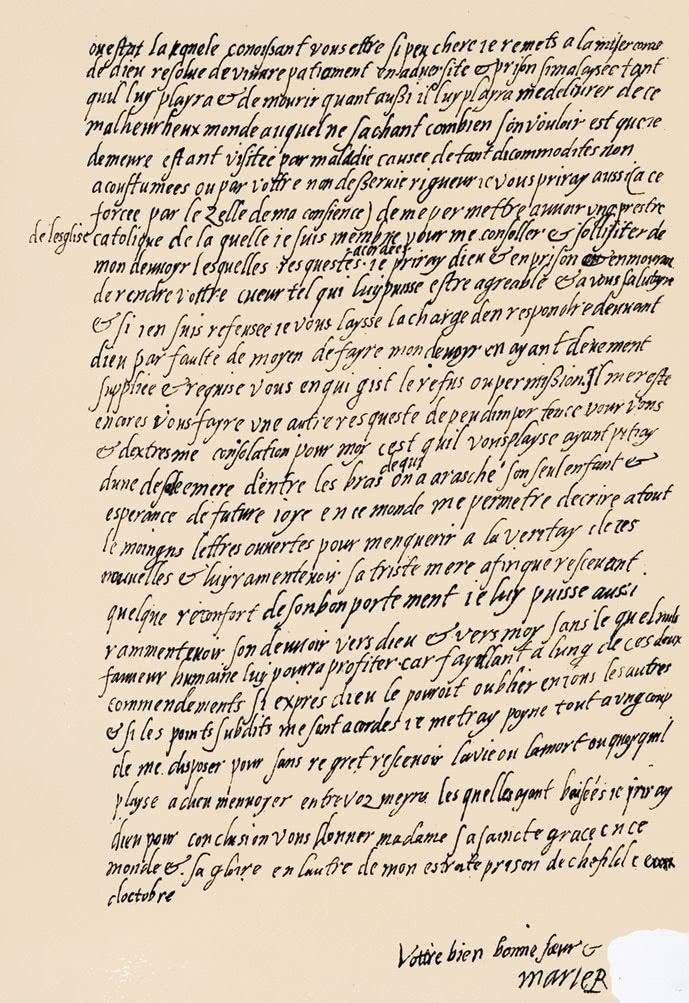 ou estat laquele conoissant vous estre si peu chere ie remets a la misericorde
de dieu resolue de vivre patiament en adversite & prison si malaysee tant
quil luy playra & de mourir quant aussi il luy playra me delivrer de ce
malheurheux monde auquel ne sachant combien son vouloir est que ie
demeure estant visitee par maladie causee de tant dicommodites non
acoustumees ou par vottre non desservie rigueur ie vous priray aussi (a ce
forcee par le Zelle de ma consience) de me permettre avvoir ung prestre
de lesglise catolique de la quelle ie suis membre pour me consoller & sollisiter de
mon devvoyr lesquelles resquestes acordees ie priray dieu & en prison & en mourant
de rendre vottre cueur tel qui luy puisse estre agreable & a vous salutayre
& si ien suis refeusee ie vous laysse la charge den respondre devvant
dieu par faulte de moyen de fayre mon devvoyr en ayant devement
suppliee & requise vous en qui gist le refus ou permission. Il me reste
encores vous fayre une autre resqueste de peu dimportence pour vous
& dextresme consolation pour moy cest quil vous playse ayant pitay
dune desolee mere dentre les bras de qui on a arasché son seul enfant &
esperance de future ioye en ce monde me permetre decrire a tout
le moingns lettres ouvertes pour menquerir a la veritay de ses
nouvelles & luy ramentevoir sa triste mere afin que rescevant
quelque reconfort de son bon portement ie luy puisse aussi
rammentevoir son devvoir vers dieu & vers moy sans le quel nulle
faveur humaine luy pourra profiter car fayllant a lung de ces deux
commendements si expres dieu le pouroit oublier en tous les autres
& si les points subdits me sont acordes ie metray poyne tout a ung coup
de me disposer pour sans regret rescevoir la vie ou la mort ou quoy quil
playse a dieu menvoyer entre voz meyns les quelles ayant baisées ie priray
dieu pour conclusion vous donner madame sa saincte grace en ce
monde & sa gloire en lautre de mon estroite prison de chefild ce
doctobre
Vottre bien bonne sœur &
MARIE R